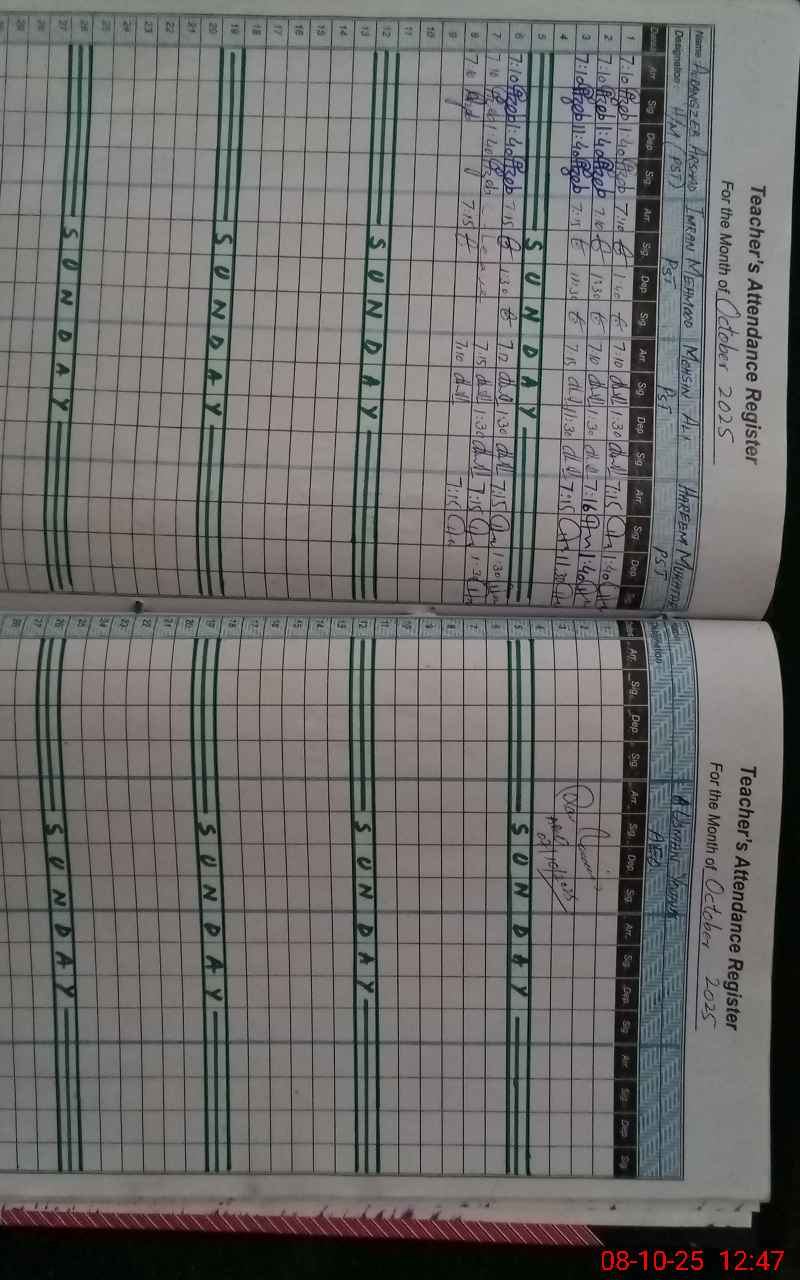 Teacher's Attendance Register
For the Month of October 2025
Name AURANGZEB ARSHAD IMRAN MEHMOOD MOHSIN ALI HAREEM MUKHTAR
Designation: HM (PST) PST PST PST
Dates Arr. Sig. Dep. Sig. Arr. Sig. Dep. Sig. Arr. Sig. Dep. Sig. Arr. Sig. Dep. Sig.
1 7:10 1:40 7:10 1:40 7:10 1:30 7:15 1:40
2 7:10 1:40 7:10 1:30 7:10 1:30 7:16 1:40
3 7:10 11:40 7:15 11:30 7:15 11:30 7:15 11:30
4
5 SUNDAY
6 7:10 1:40 7:15 1:30 7:12 1:30 7:15 1:30
7 7:10 1:40 Leave 7:15 1:30 7:15 1:30
8 7:10 7:15 7:10 7:15
9
10
11
12 SUNDAY
13
14
15
16
17
18
19 SUNDAY
20
21
22
23
24
25
26 SUNDAY
27
28
29
Teacher's Attendance Register
For the Month of October 2025
AEO
Arr. Sig. Dep. Sig. Arr. Sig. Dep. Sig. Arr. Sig. Dep. Sig. Arr. Sig. Dep. Sig.
1
2
3
4
5 SUNDAY
6
7
8
9
10
11
12 SUNDAY
13
14
15
16
17
18
19 SUNDAY
20
21
22
23
24
25
26 SUNDAY
27
28
08-10-25 12:47